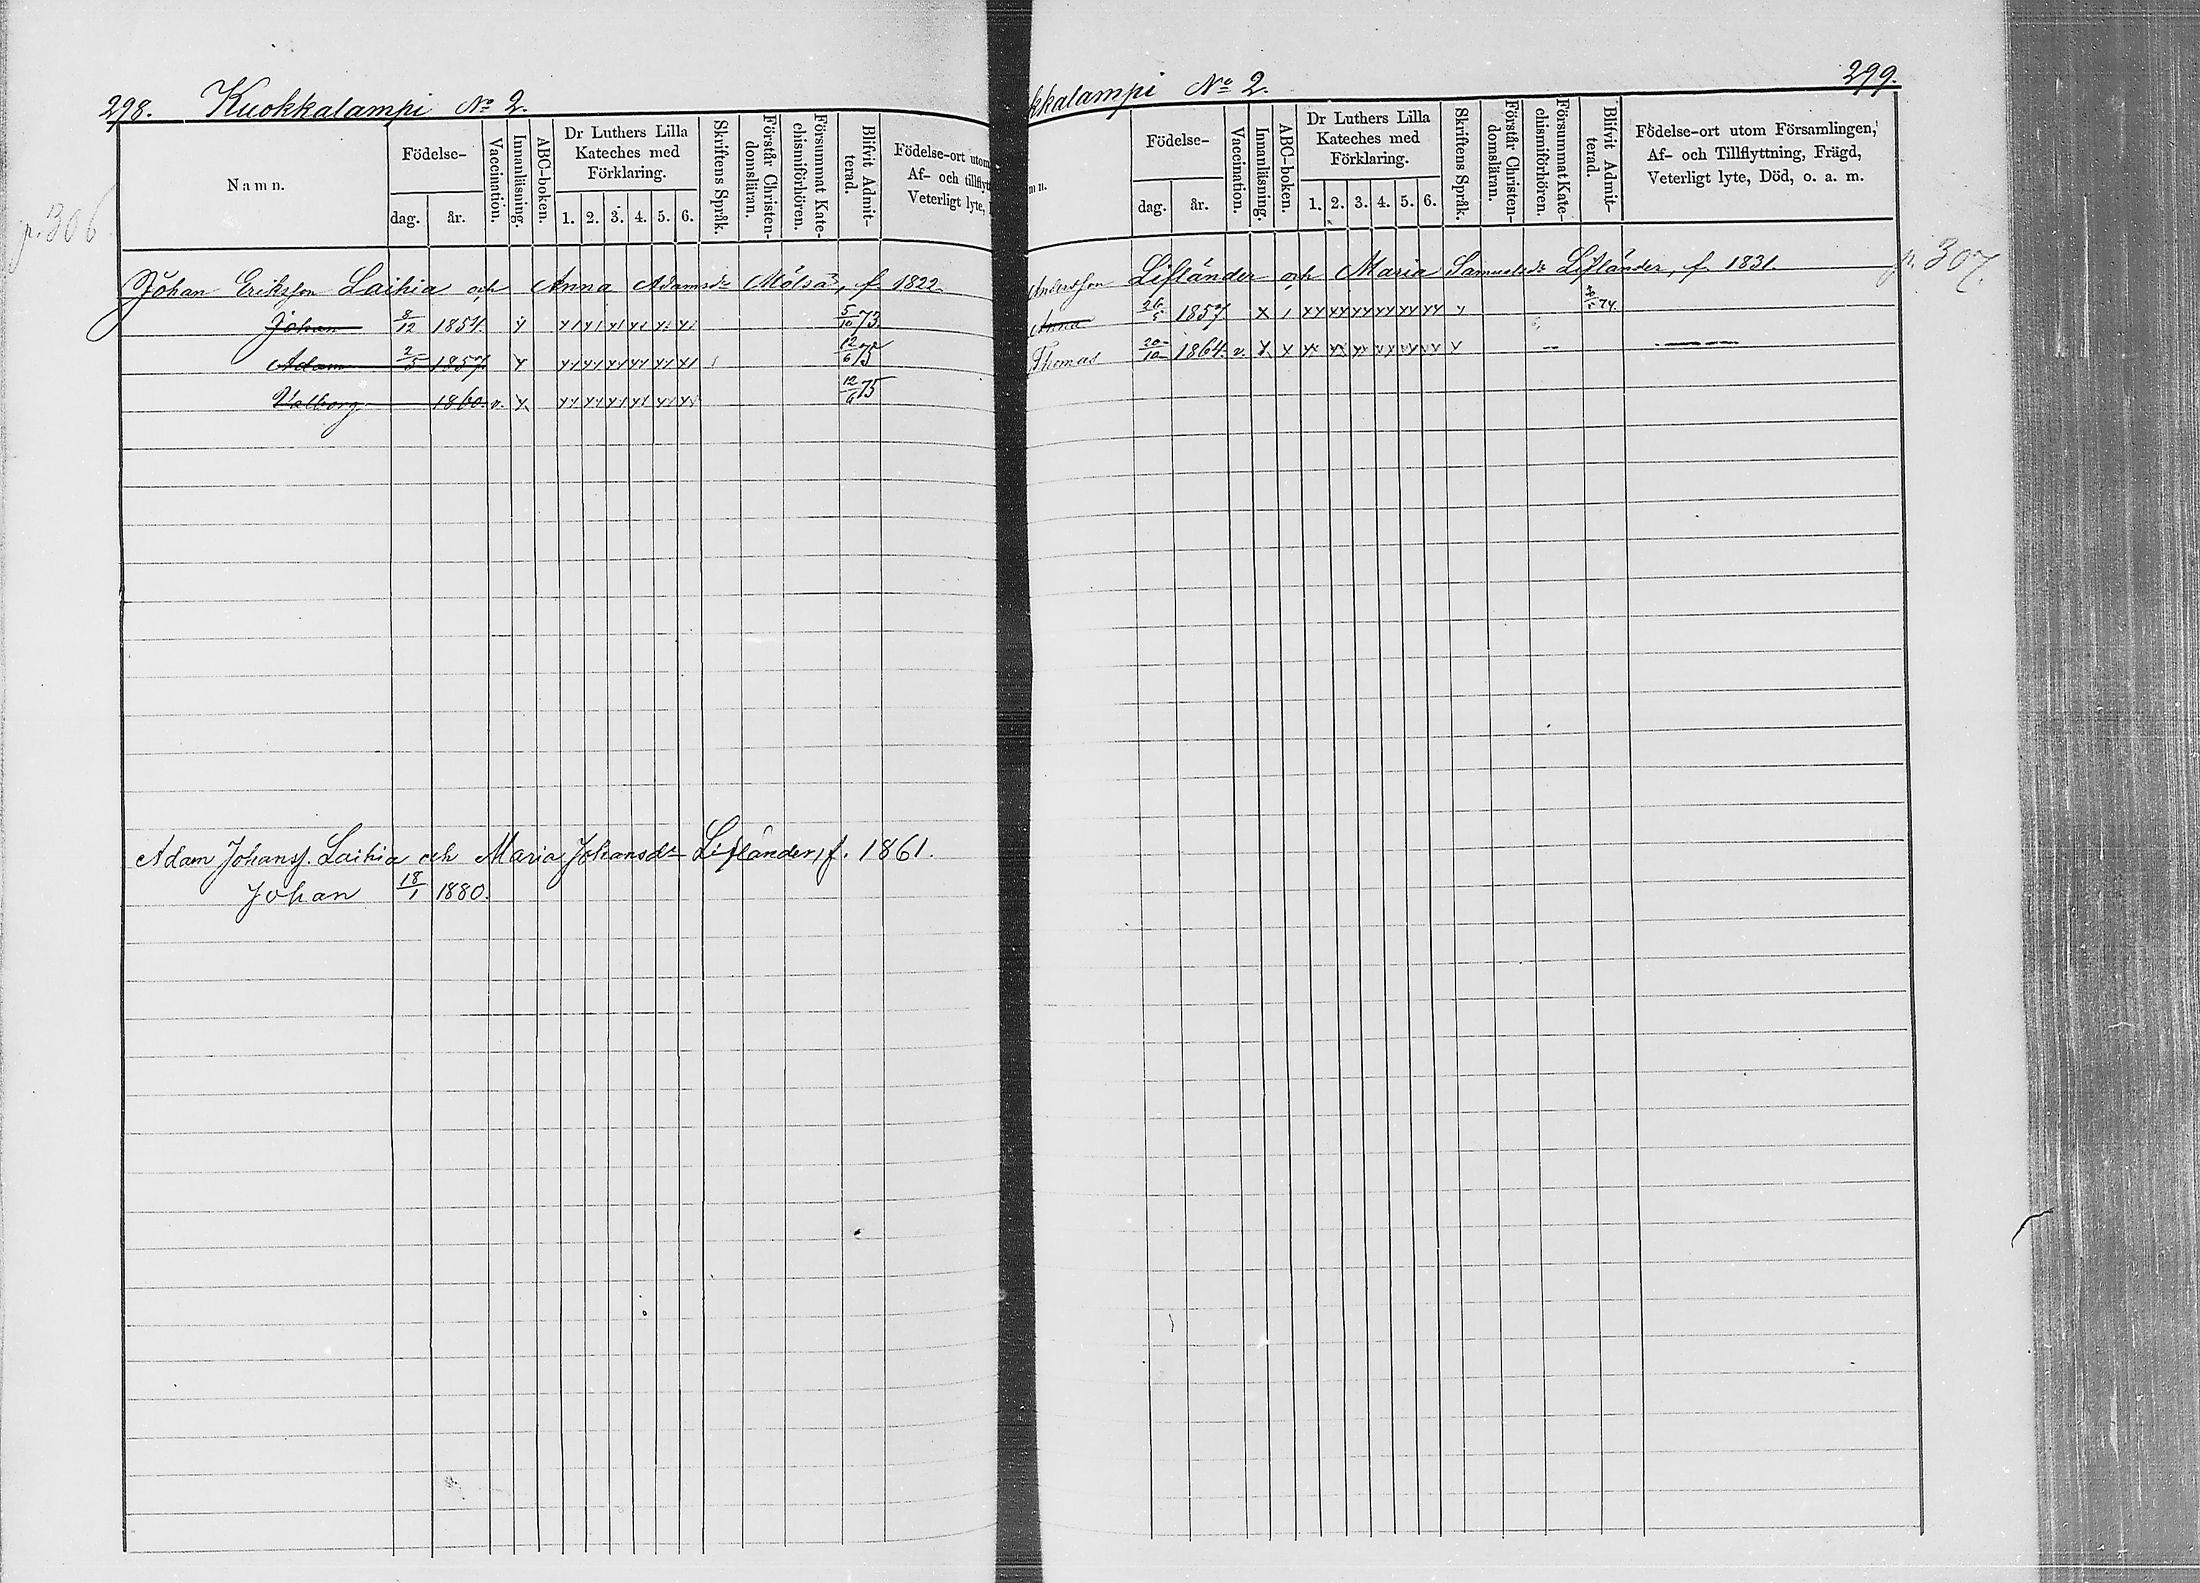 298. Kuokkalampi No 2.
p. 306
Namn.
Födelse-
dag. år.
Vaccination.
Innanläsning.
ABC-boken.
Dr Luthers Lilla Kateches med Förklaring.
1. 2. 3. 4. 5. 6.
Skriftens Språk.
Förstår Christen-domsläran.
Försummat Kate-chismiförhören.
Blifvit Admit-terad.
Födelse-ort utom
Af- och tillflytt
Veterligt lyte,
Johan Eriksson Laihia och Anna Adamsdr Mölsä, f 1822
Johan 8/12 1854. 5/10 73.
Adam 2/5 1857 12/6 75
Valborg 1860. v. 12/6 75
Adam Johanss. Laihia och Maria Johansdr Lifländer, f. 1861.
Johan 18/1 1880.
kkalampi No 2. 299.
p. 307.
n.
Födelse-
dag. år.
Vaccination.
Innanläsning.
ABC-boken.
Dr Luthers Lilla Kateches med Förklaring.
1. 2. 3. 4. 5. 6.
Skriftens Språk.
Förstår Christen-domsläran.
Försummat Kate-chismiförhören.
Blifvit Admit-terad.
Födelse-ort utom Församlingen,
Af- och Tillflyttning, Frägd,
Veterligt lyte, Död, o. a. m.
Andersson Lifländer och Maria Samuelsdr Lifländer, f. 1831.
Anna 26/5 1857. 74.
Thomas 20/10 1864. v.